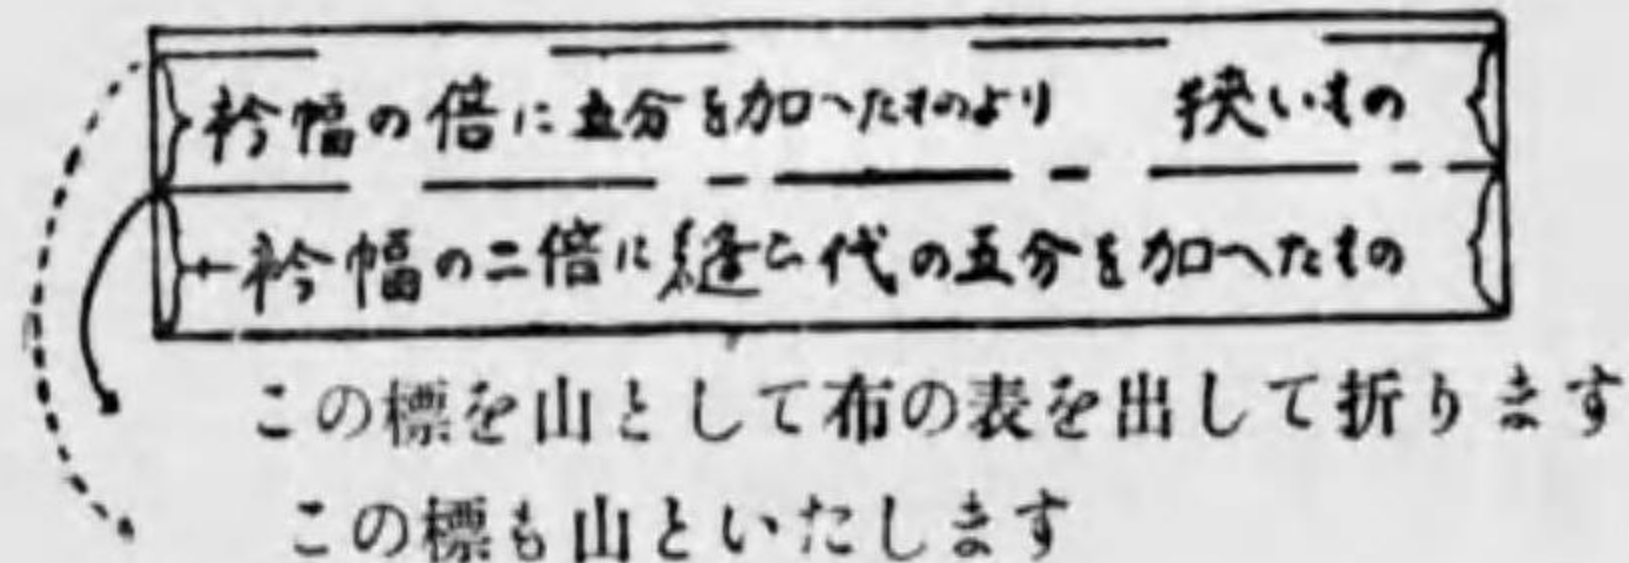 衿幅の倍に五分を加へたものより 狭いもの
衿幅の二倍に縫こ代の五分を加へたもの
この標を山として布の表を出して折ります
この標も山といたします